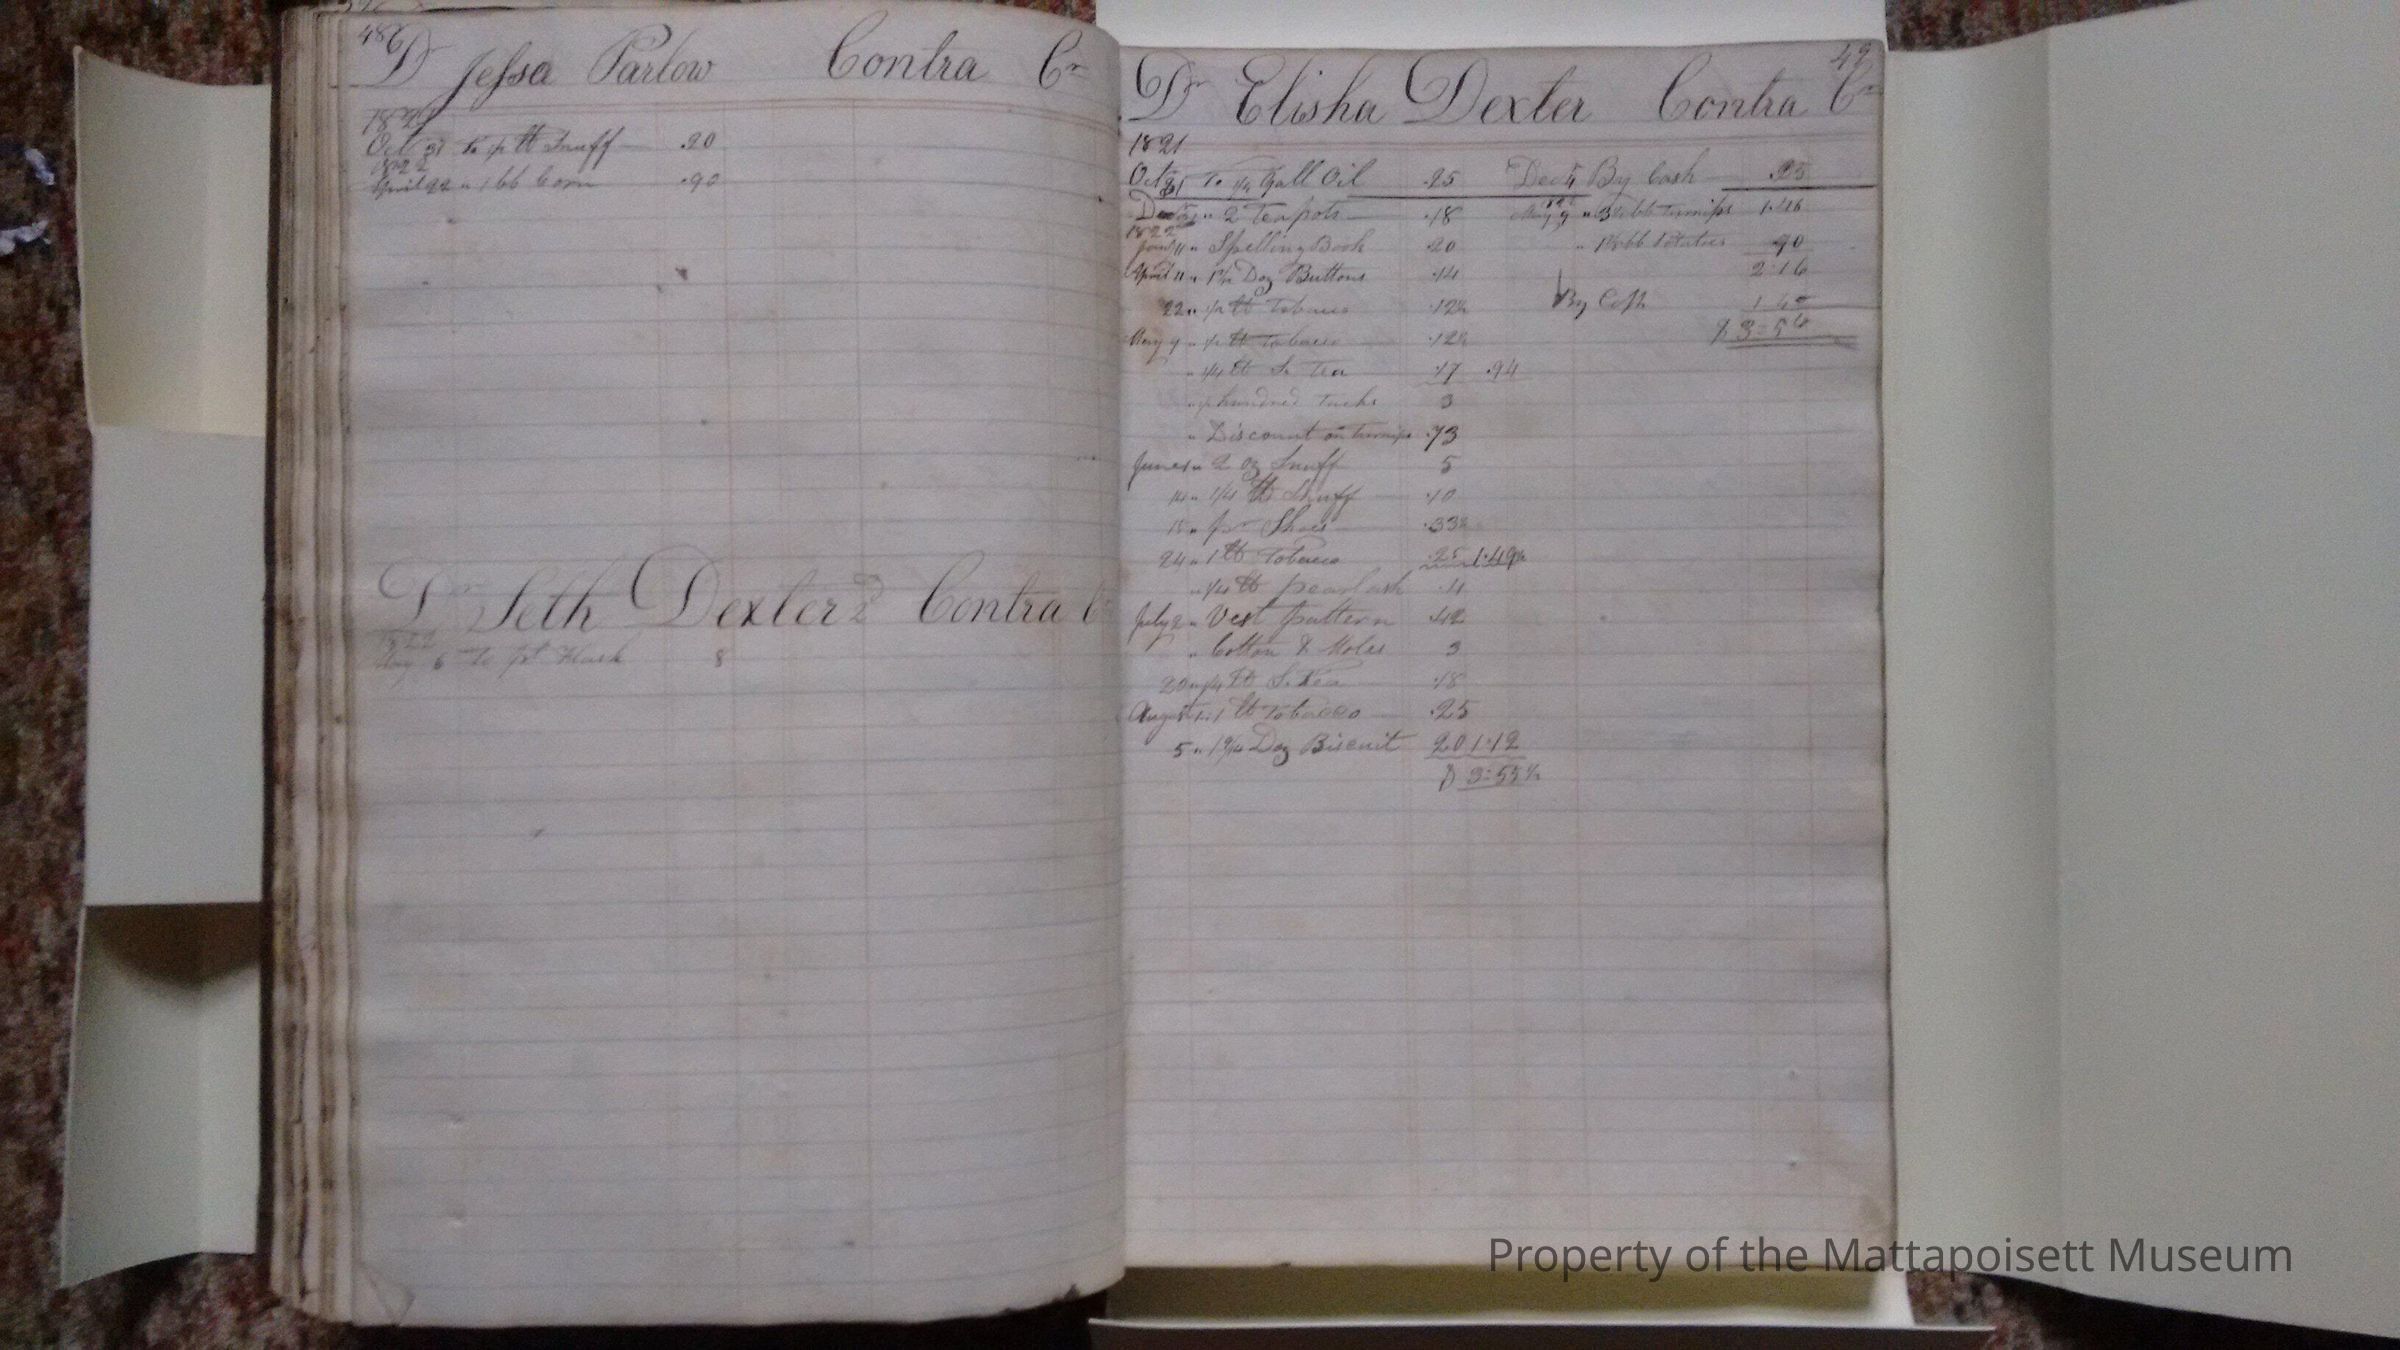 48
Dr Jessa Parlow Contra Cr
Oct 31 To ½ lb Snuff .20
1822
April 22 " 1 bb Corn .90
Dr Seth Dexter 2d Contra C
1822
May 6 To pt Flask 8
49
Dr Elisha Dexter Contra Cr
1821
Oct 31 To ¼ Gall Oil .25 Dec 5 By Cash .25
Dec " 2 Tea pots .18 1822 May 9 " bb turnips 1.46
1822
Jany 11 " Spelling Book 20 " bb Potatoes 90
April 11 " 1½ Doz Buttons .14 2.16
22 " ½ lb Tobacco .12½ By Cash 1 40
May 9 " ½ lb Tobacco .12½ $ 3=56
" ¼ lb S. Tea .17 .94
" hundred Tacks 3
" Discount on turnips .73
June 1 " 2 oz Snuff 5
14 " ¼ lb Snuff .10
15 " pr Shoes .33½
24 " 1 lb Tobacco .25 1.49½
" ¼ lb pearlash .4
July 2 " Vest pattern .42
" Cotton & Moles 3
20 " ¼ lb S. Tea .18
August 1 " 1 lb Tobacco .25
5 " 1¾ Doz Biscuit 20 1.12
$ 3=55½
Property of the Mattapoisett Museum